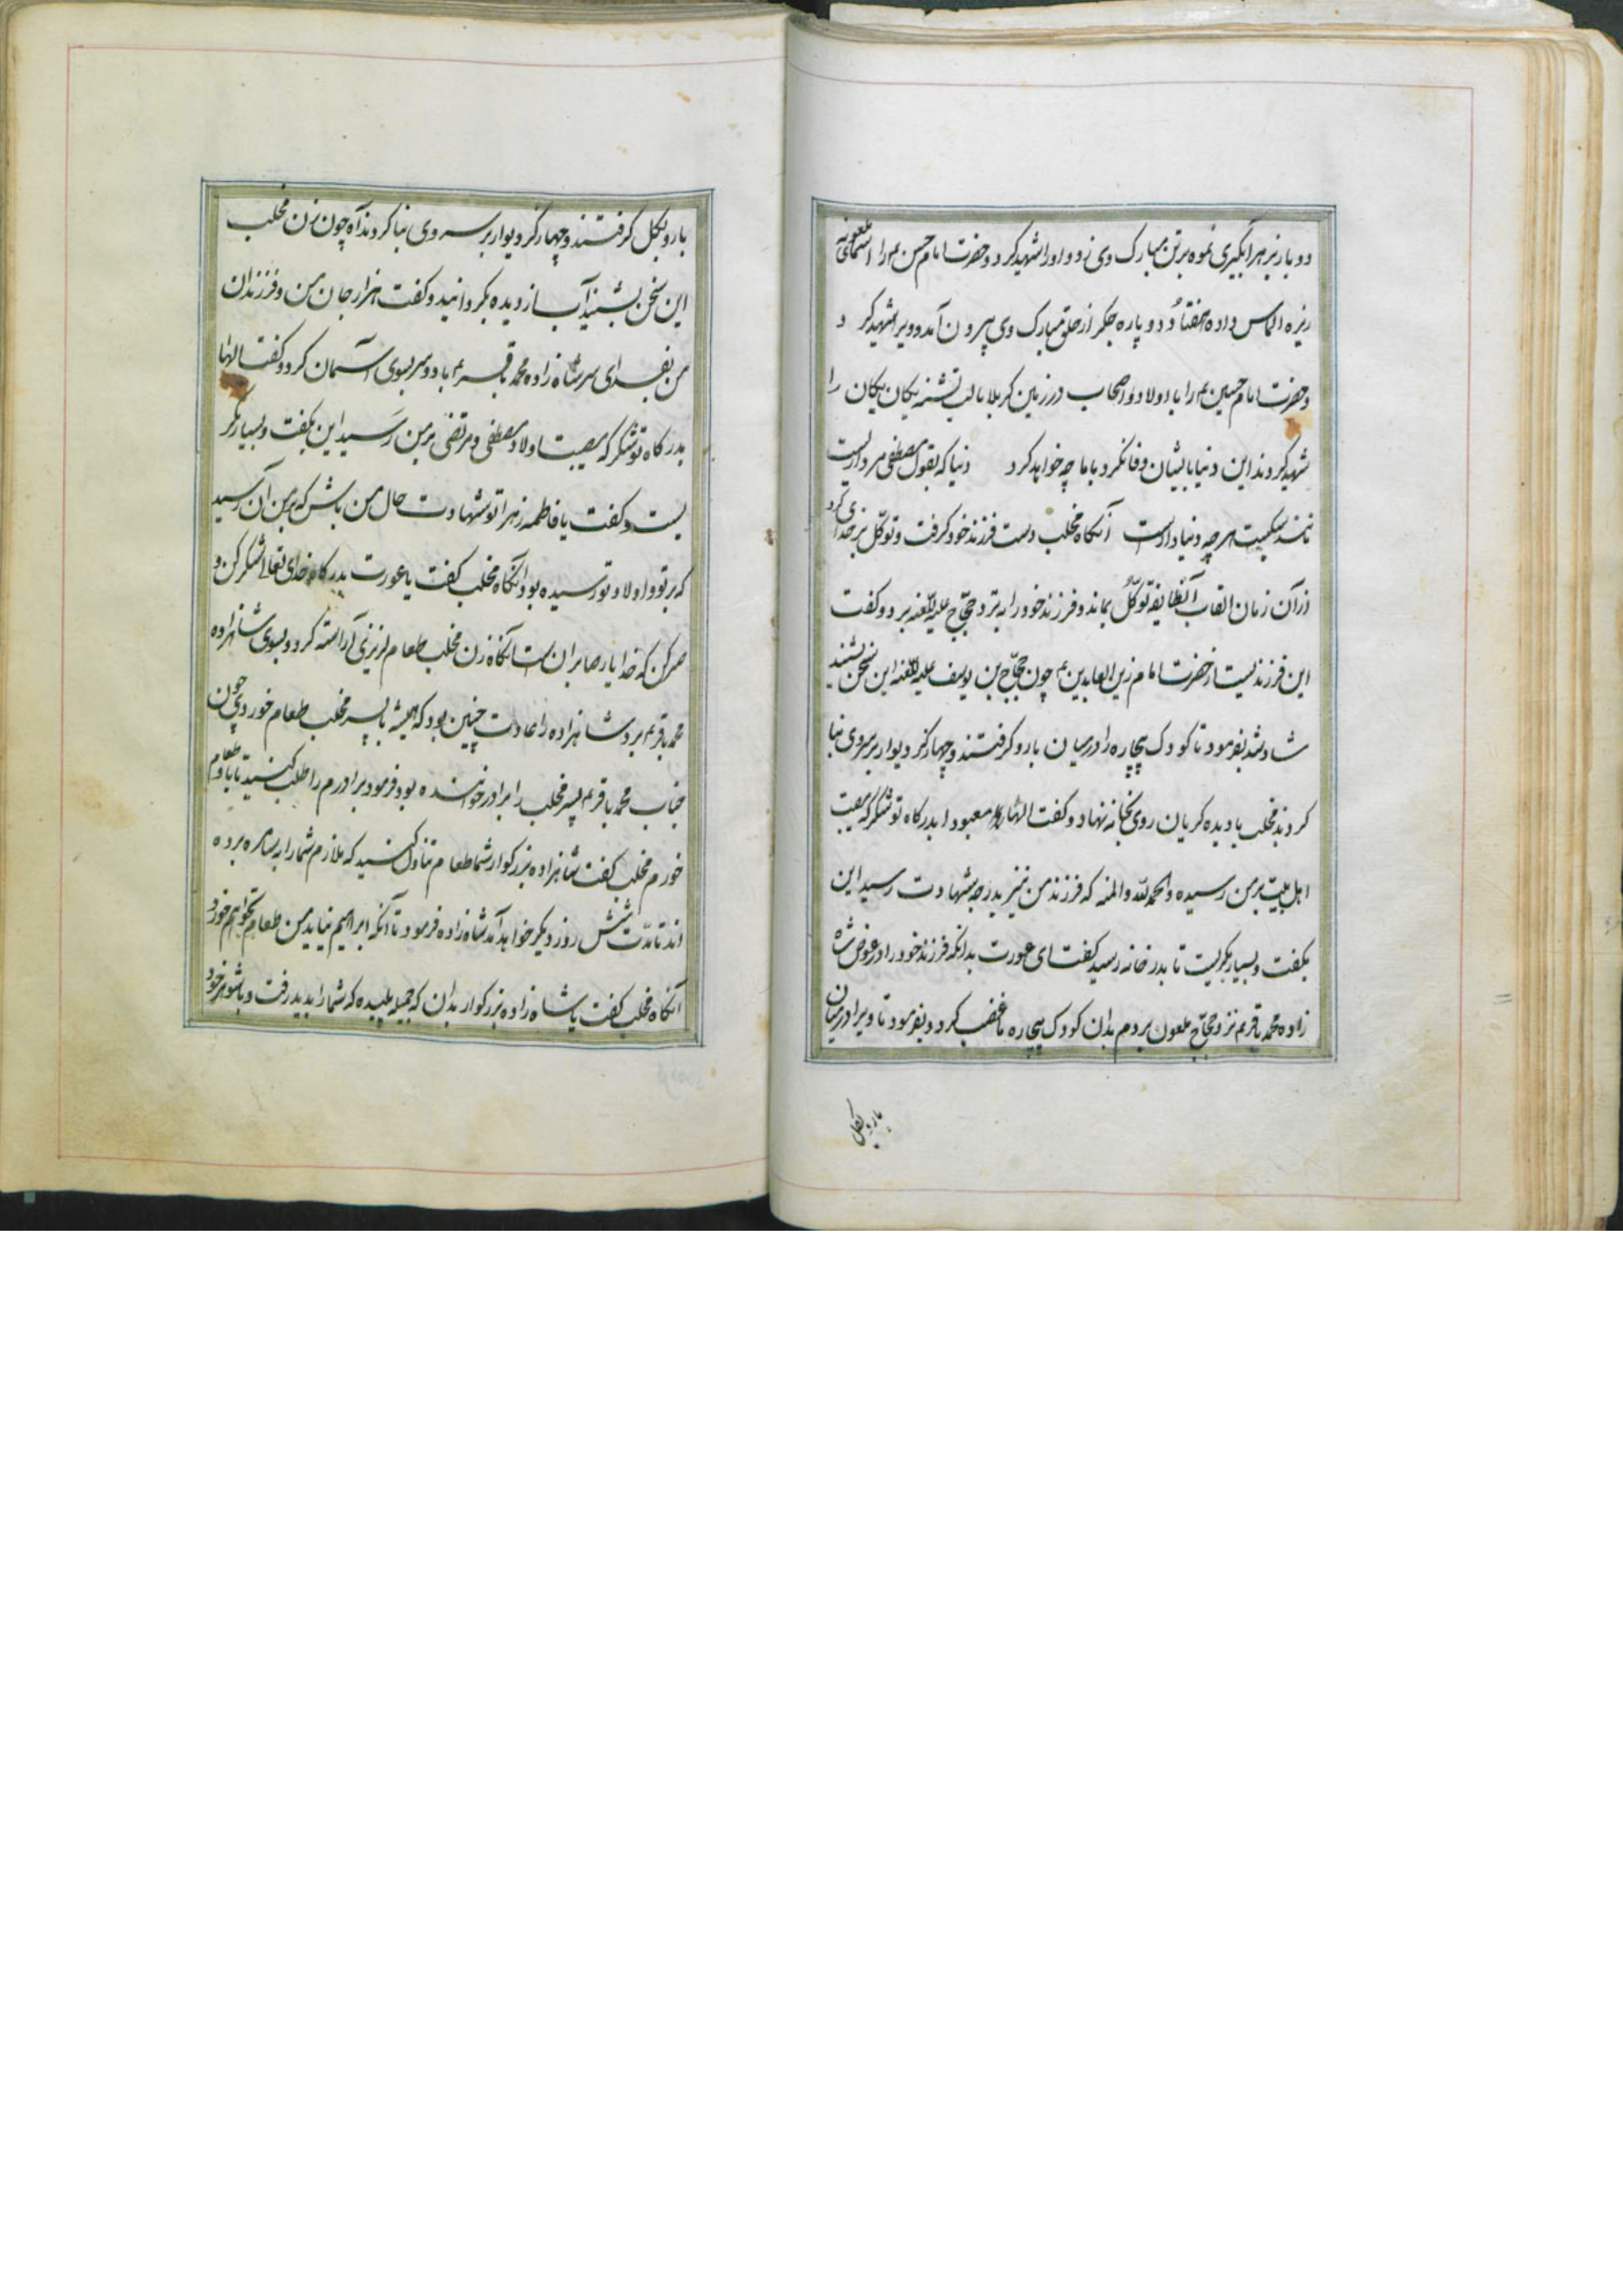 دو بار بزهر آبگیری نموه برتن مبارک وی زد و اورا شهید کرد و حضرت امام حسن ع را اسمای ملعونه
ریزه الماس داده هفتاد و دو پاره جگر از حلق مبارک وی بیرون آمد و ویرا شهید کرد
و حضرت امام حسین ع را با اولاد و اصحاب در زمین کربلا با لب تشنه یکان یکان را
شهید کردند این دنیا با ایشان وفا نکرد با ما چه خواهد کرد دنیا که بقول مصطفی مرداریست
هر چه دنیاداراست آنگاه مخلب دست فرزند خود گرفت و توکل بر خدای کرد
از آن زمان القاب آنطایفه توکل بماند و فرزند خود را به نزد حجاج علیه اللعنه برد و گفت
این فرزندیست از حضرت امام زین العابدین ع چون حجاج بن یوسف علیه اللعنه این سخن بشنید
شاد شد بفرمود تا کودک بیچاره را در میان بارو گرفتند و چهار گز دیوار بر سر وی بنا
کردند مخلب با دیده گریان روی بخانه نهاد و گفت الها معبودا بدرگاه تو شکر که مصیبت
اهل بیت بر من رسیده و الحمدلله والمنه که فرزند من نیز بدرجه شهادت رسید این
بگفت و بسیار بگریست تا بدر خانه رسید گفت ای عورت بدانکه فرزند خود را در عوض شاه
زاده محمد باقر ع نزد حجاج ملعون بردم بدان کودک بیچاره غضب کرد و بفرمود تا ویرا در میان
بارو بگل
بارو بگل گرفتند و چهار گز دیوار بر سر وی بنا کردند آه چون زن مخلب
این سخن بشنید آب از دیده بگردانید و گفت هزار جان من و فرزندان
من بفدای سر شاه زاده محمد باقر ع باد و سر بسوی آسمان کرد و گفت الها
بدرگاه تو شکر که مصیبت اولاد مصطفی و مرتضی بر من رسید این بگفت و بسیار بگر
یست و گفت یا فاطمه زهرا تو شهادت حال من باش که بر من آن رسید
که بر تو و اولاد تو رسیده بود آنگاه مخلب گفت یا عورت بدرگاه خدای تعالی شکر کن و
صبر کن که خدا یار صابران است آنگاه زن مخلب طعام لزیزی آراسته کرد و بسوی شاهزاده
محمد باقر ع برد شاهزاده را عادت چنین بود که همیشه با پسر مخلب طعام خوردی چون
جناب محمد باقر ع پسر مخلب را برادر خوانده بود فرمود برادرم را طلب کنید تا باهم طعام
خورم مخلب گفت شاهزاده بزرکوار شما طعام تناول کنید که ملازم شما را به برده
اند تا مدت شش روز دیگر خواهد آمد شاه زاده فرمود تا آنکه ابراهیم نیاید من طعام نخواهم خورد
آنگاه مخلب گفت یا شاه زاده بزرکوار بدان که جمیله پلیده که شما را بدید رفت و با شوهر خود